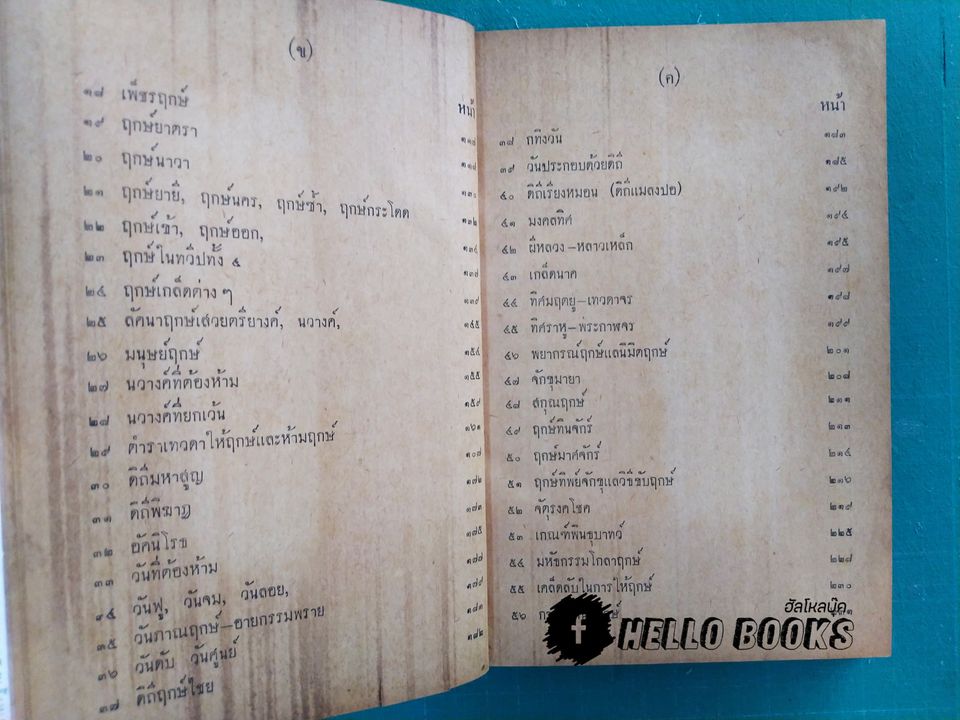 (ข)
หน้า
๑๘ เพ็ชรฤกษ์ ๑๑๗
๑๙ ฤกษ์ยาตรา ๑๑๘
๒๐ ฤกษ์นาวา ๑๓๐
๒๑ ฤกษ์ยายี, ฤกษ์นคร, ฤกษ์ซ้ำ, ฤกษ์กระโดด ๑๓๒
๒๒ ฤกษ์เข้า, ฤกษ์ออก, ๑๓๔
๒๓ ฤกษ์ในทวีปทั้ง ๔ ๑๓๗
๒๔ ฤกษ์เกล็ดต่าง ๆ ๑๓๙
๒๕ ลัคนาฤกษ์เสวยตรียางค์, นวางค์, ๑๔๕
๒๖ มนุษย์ฤกษ์ ๑๕๔
๒๗ นวางค์ที่ต้องห้าม ๑๕๕
๒๘ นวางค์ที่ยกเว้น ๑๕๙
๒๙ ตำราเทวดาให้ฤกษ์และห้ามฤกษ์ ๑๖๑
๓๐ ดิถีมหาสูญ ๑๐๗
๓๑ ดิถีพิฆาฏ ๑๗๒
๓๒ อัคนิโรธ ๑๗๓
๓๓ วันที่ต้องห้าม ๑๗๕
๓๔ วันฟู, วันจม, วันลอย, ๑๗๗
๓๕ วันภาณฤกษ์—อายกรรมพราย ๑๗๙
๓๖ วันดับ วันศูนย์ ๑๘๑
๓๗ ดิถีฤกษ์ไชย ๑๘๒
(ค)
หน้า
๓๘ กทิงวัน ๑๘๓
๓๙ วันประกอบด้วยดิถี ๑๘๕
๔๐ ดิถีเรียงหมอน (ดิถีแมลงปอ) ๑๙๒
๔๑ มงคลทิศ ๑๙๔
๔๒ ผีหลวง—หลาวเหล็ก ๑๙๕
๔๓ เกล็ดนาค ๑๙๗
๔๔ ทิศมฤตยู—เทวดาจร ๑๙๘
๔๕ ทิศราหู—พระกาฬจร ๑๙๙
๔๖ พยากรณ์ฤกษ์แลนิมิตฤกษ์ ๒๐๑
๔๗ จักขุมายา ๒๐๘
๔๘ สกุณฤกษ์ ๒๑๑
๔๙ ฤกษ์ทินจักร์ ๒๑๓
๕๐ ฤกษ์มาศจักร์ ๒๑๔
๕๑ ฤกษ์ทิพย์จักขุแลวิธีขับฤกษ์ ๒๑๖
๕๒ จัตุรงคโชค ๒๑๙
๕๓ เกณฑ์พินธุบาทว์ ๒๒๕
๕๔ มหัธกรรมโกลาฤกษ์ ๒๒๘
๕๕ เคล็ดลับในการให้ฤกษ์ ๒๓๐
๕๖
ฮัลโหลบุ๊ค
HELLO BOOKS